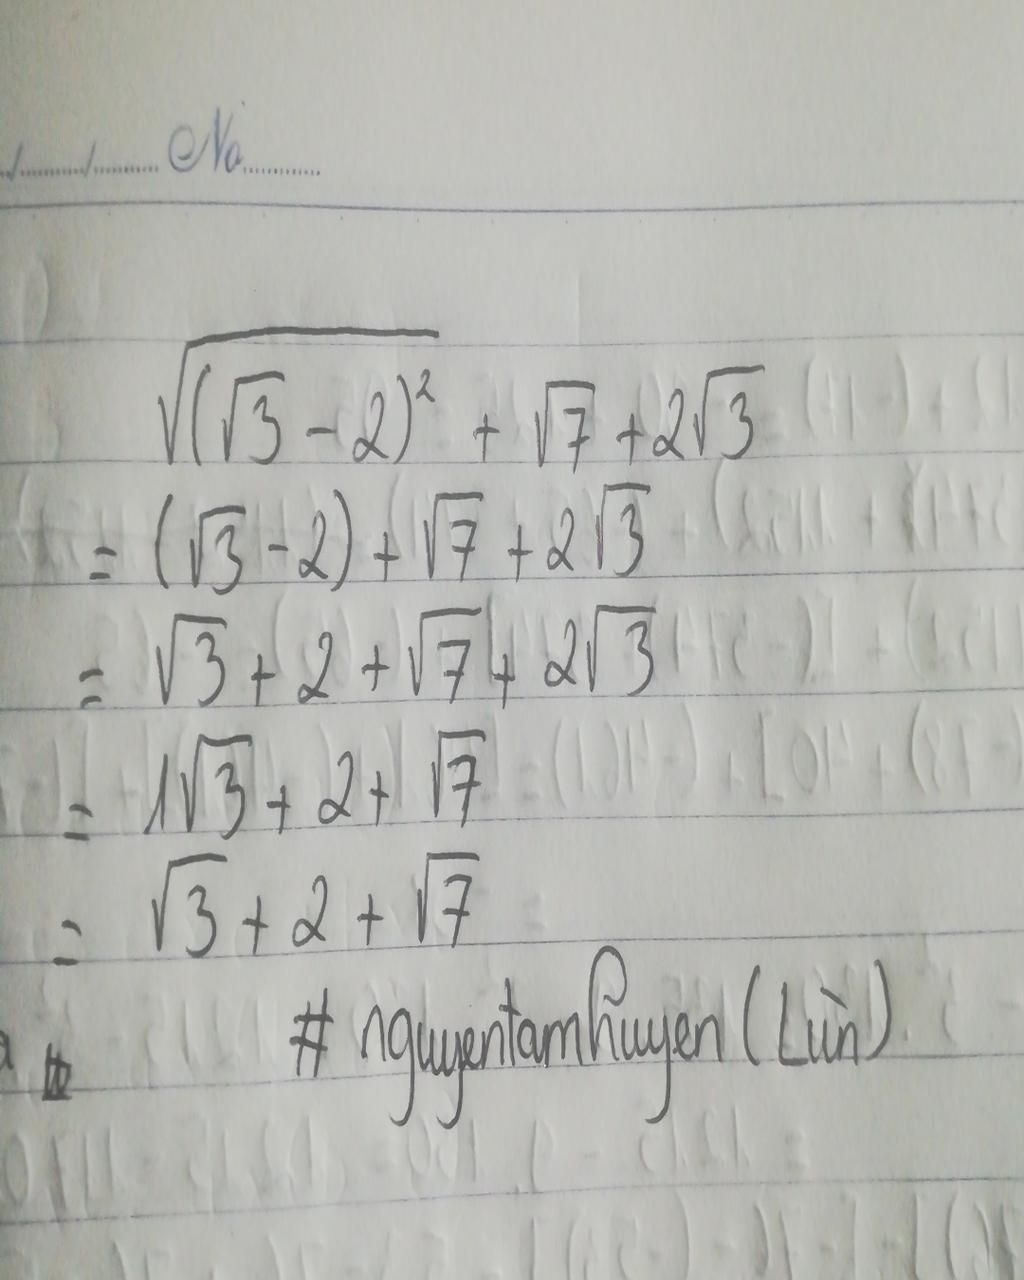 No
√(√3 - 2)² + √7 + 2√3
= (√3 - 2) + √7 + 2√3
= √3 + 2 + √7 + 2√3
= 1√3 + 2 + √7
= √3 + 2 + √7
# nguyentamhuyen (Lùn)